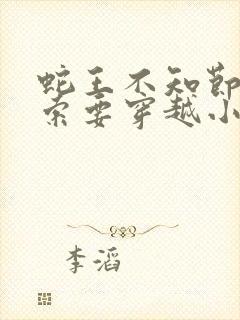 蛇王不知节
索要穿越小
李滔